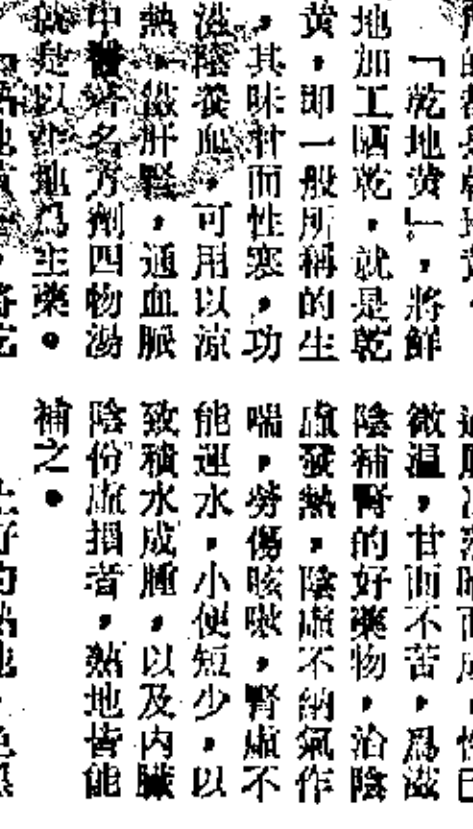 「乾地黄」，將鮮
地加工晒乾，就是乾
黄，即一般所稱的生
，其味甘而性寒，功
滋陰養血，可用以涼
熱，滋肝腎，通血脈
中醫著名方劑四物湯
就是以生地爲主藥。
微温，甘而不苦，爲滋
陰補腎的好藥物，治陰
虛發熱，陰虛不納氣作
喘，勞傷咳嗽，腎虛不
能運水，小便短少，以
致積水成腫，以及内臟
陰份虛損者，熱地皆能
補之。